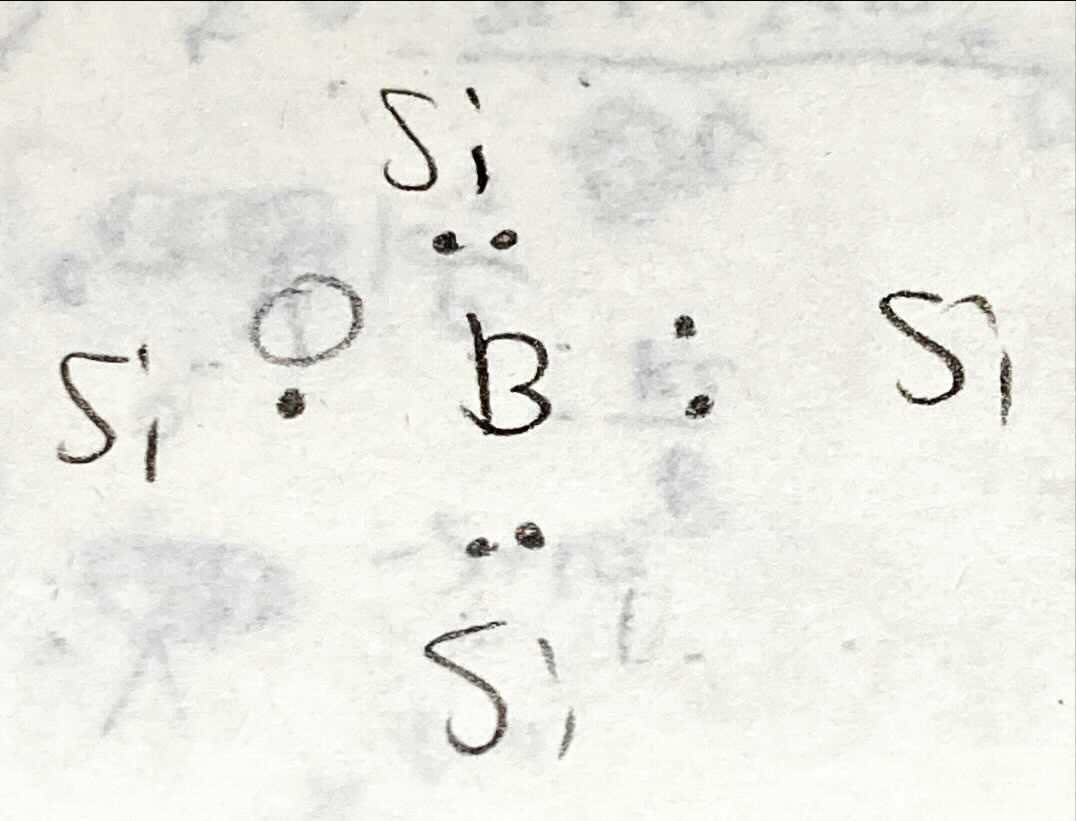 Si
Si B Si
Si